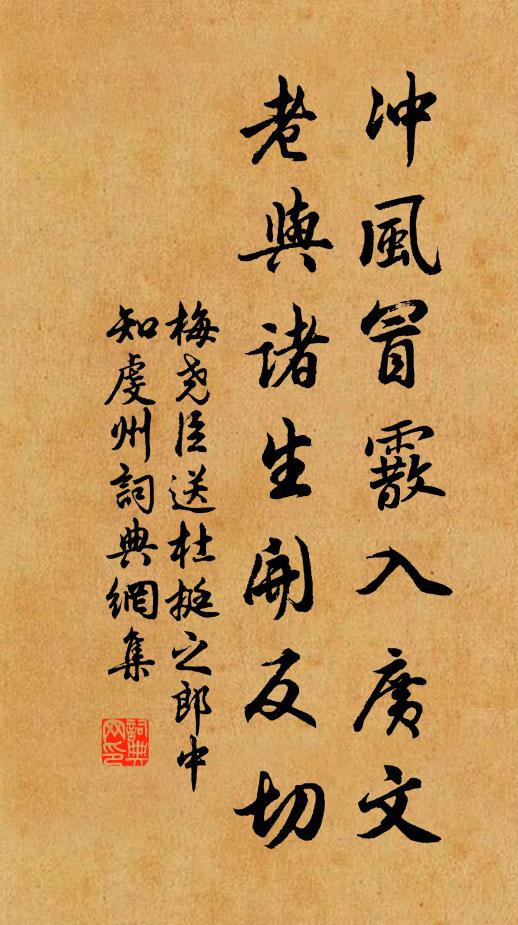 冲風冒霰入廣文
老與諸生開反切
梅尧臣送杜挺之郎中
知虔州詞典網集
詞典
网印